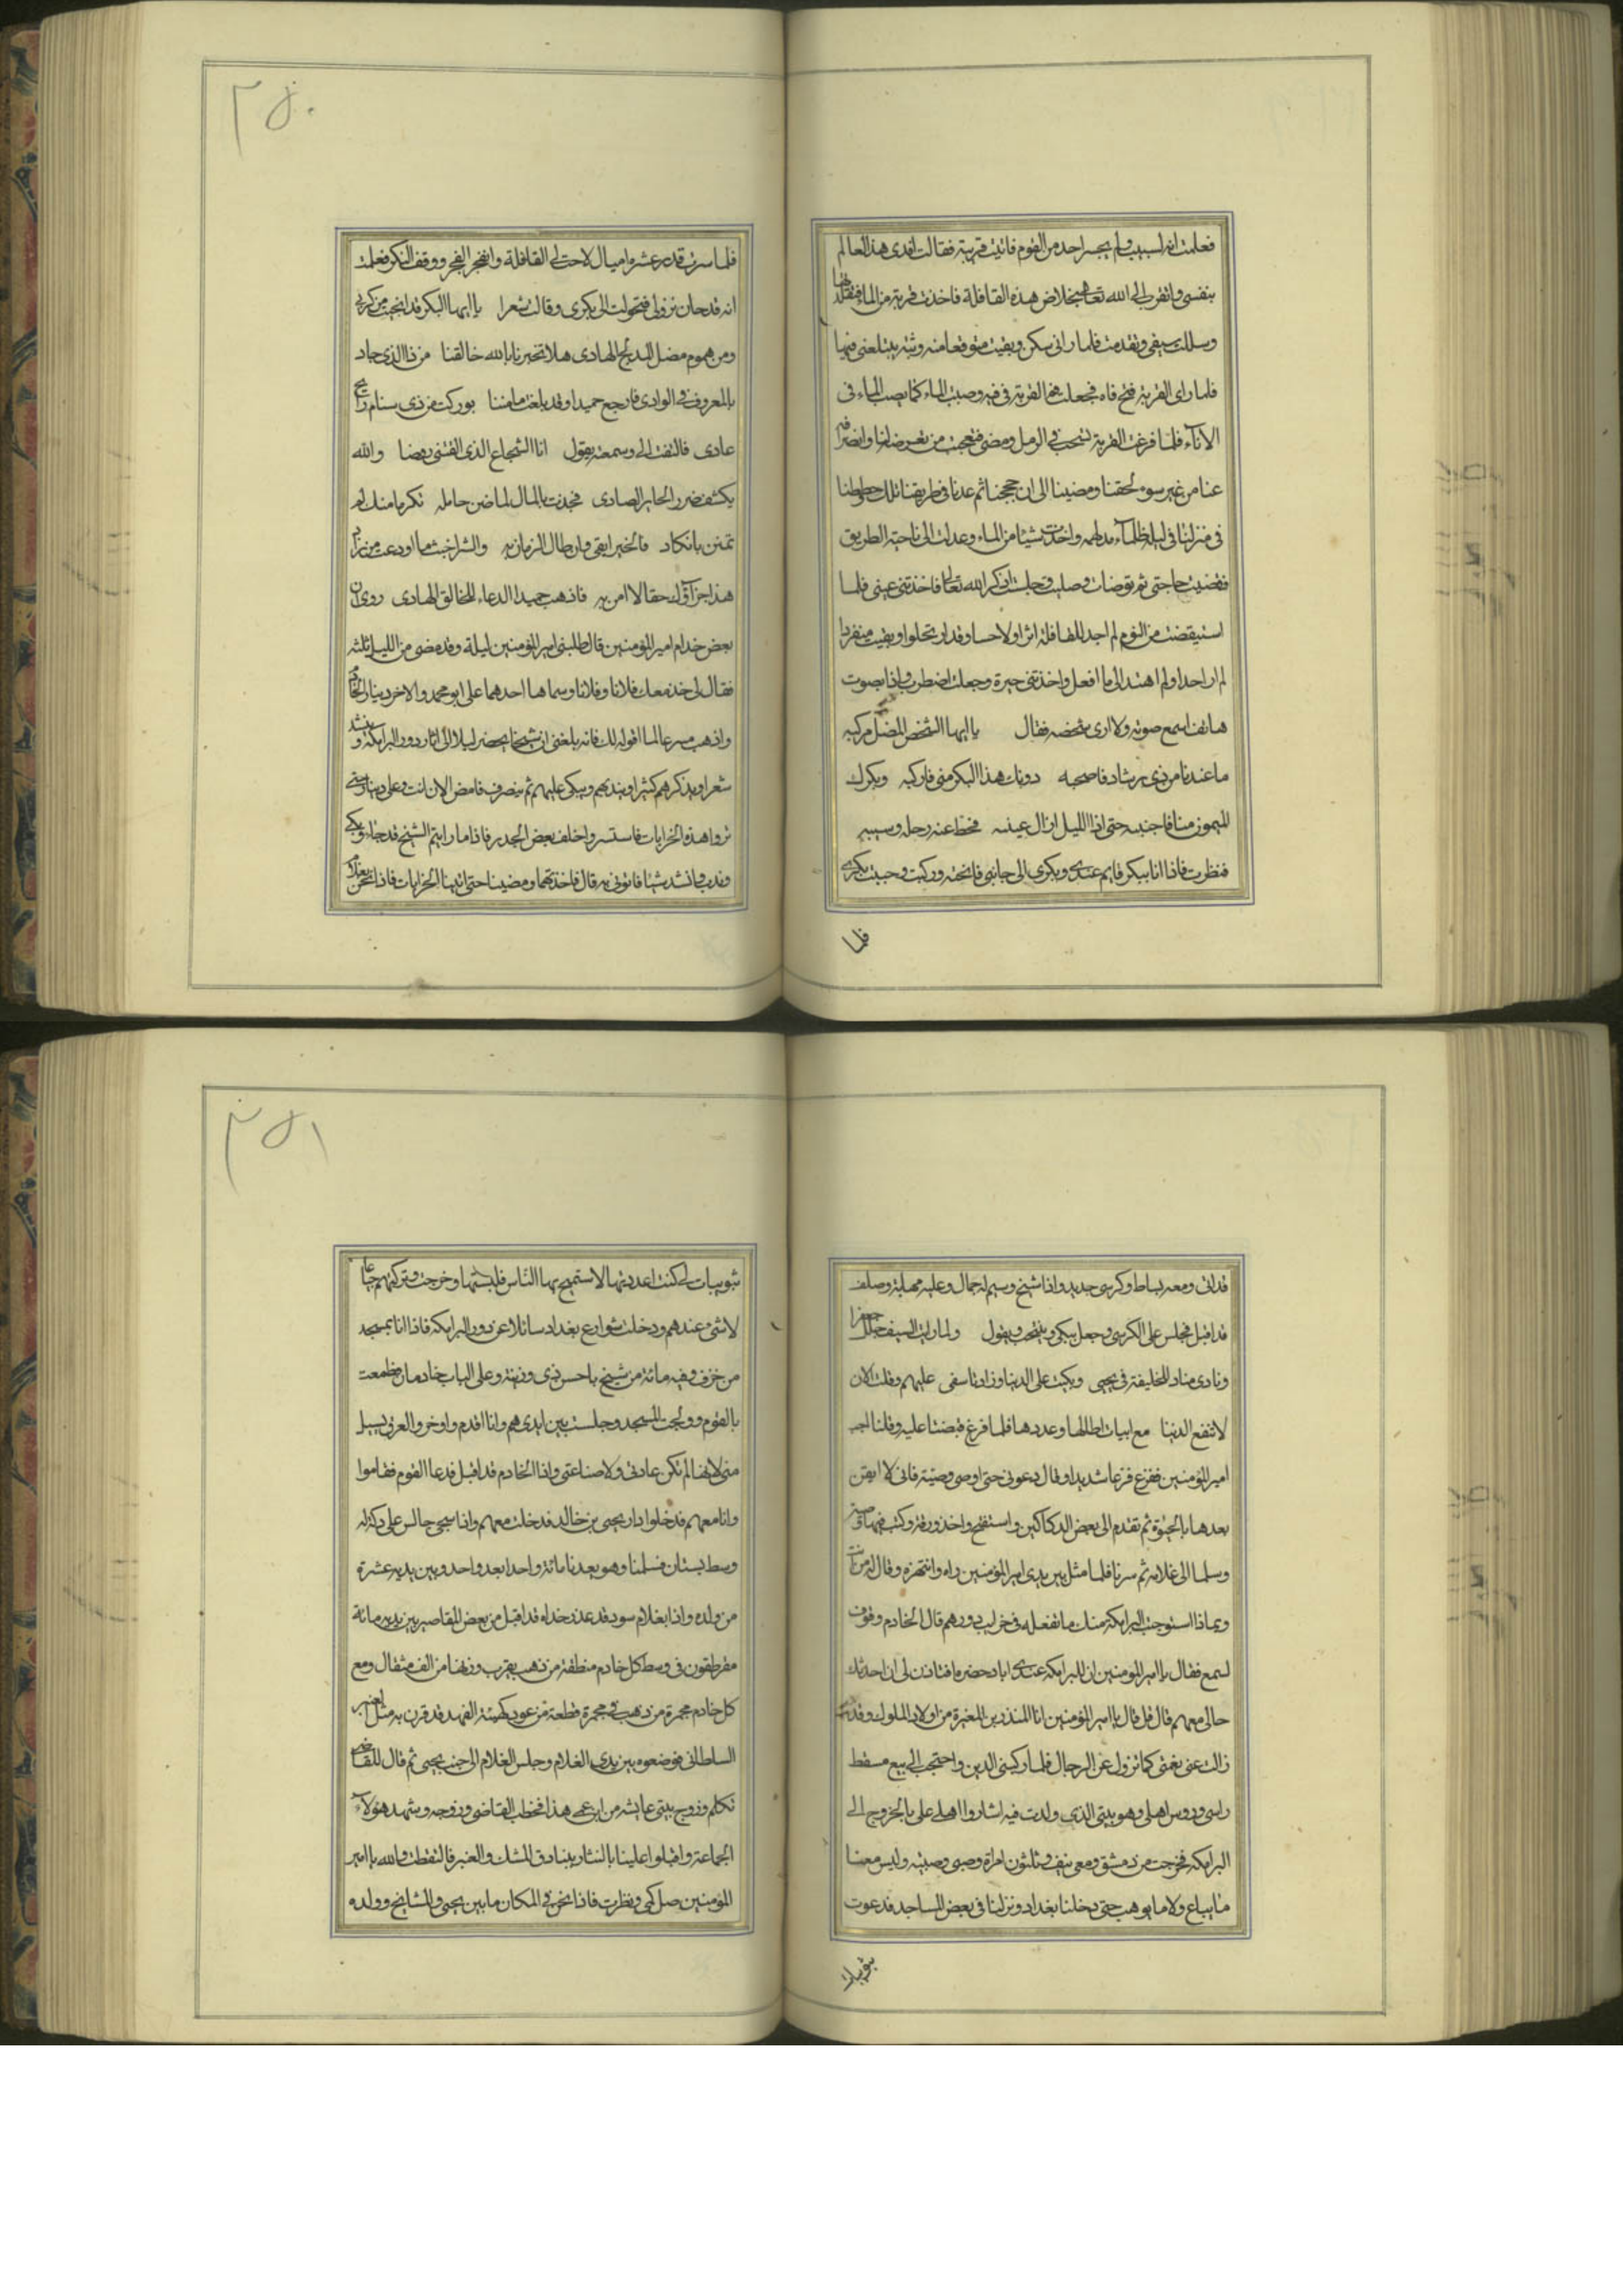 فعلمت انه لسبب ولم يجسر احد من القوم فاتيت قربته فقالت افدى هذا العالم
بنفسى واتقرب الى الله تعالى بخلاص هذه القافلة فاخذت قربة من الماء فتقلدتها
وسللت سيفى وتقدمت فلما رانى سكن وبقيت متوقعا منه وثبة يبتلعنى فيها
فلما راى القربة فتح فاه فجعلت فم القربة فى فيه وصببت الماء كما يصب الماء فى
الاناء فلما فرغت القربة تسحب فى الرمل ومضى فتعجبت من تعرضه لنا وانصرافه
عنا من غير سوء لحقنا ومضينا الى ان حججنا ثم عدنا فى طريقنا تلك وحططنا
فى منزلنا فى ليلة ظلماء مدلهمه واخذت شيئا من الماء وعدلت الى ناحية الطريق
فقضيت حاجتى ثم توضات وصليت وجلست اذكر الله تعالى فاخذتنى عينى فلما
استيقضت من النوم لم اجد للقافلة اثرا ولا حسا وقد ارتحلوا وبقيت منفردا
لم ار احدا ولم اهتد الى ما افعل واخذتنى حيرة وجعلت اضطرب واذا بصوت
هاتف اسمع صوته ولا ارى شخصه فقال يا ايها الشخص المضل مركبه
ما عنده من ذى رشاد فاصحبه دونك هذا البكر منى فاركبه وبكرك
الميمون منا فاجنبه حتى اذا الليل ازال عيبه فحط عنه رحله وسيبه
فنظرت فاذا انا ببكر قايم عندى وبكرى الى جانبى فانخته وركبت وجنبت بكرى
فلما
٢٥٠
فلما سرت قدر عشرة اميال لاحت لى القافلة وانفجر الفجر ووقف البكر فعلمت
انه قد حان نزولى فتحولت الى بكرى وقالت شعرا يا ايها البكر قد انجيت من كرب
ومن هموم مضل المدلج الهادى هلا تخبرنا بالله خالقنا من ذا الذى جاد
بالمعروف فى الوادى فارجع حميدا وقد بلغت مامننا بوركت من ذى سنام رائح
عادى فالتفت الى وسمعته يقول انا الشجاع الذى الفتنى رمضا والله
يكشف ضر الحاير الصادى فجدت بالمال لما ضن حامله تكرما منك لم
تمنن بانكاد فالخير ابقى وان طال الزمان به والشر اخبث ما اوعيت من زاد
هذا جزاؤك حقا لا امن به فاذهب حميدا الدعاء للخالق الهادى روى ان
بعض خدام امير المؤمنين قال طلبنى امير المؤمنين ليلة وقد مضى من الليل ثلثه
فقال لى خذ معك فلانا وفلانا وسماها احدهما على ابو محمد والاخر دينار الخادم
واذهب مسرعا لما اقوله لك فانه بلغنى ان شيخا يحضر ليلا الى اثار دور البرامكة وينشد
شعرا ويذكرهم كثيرا ويندبهم ويبكى عليهم ثم ينصرف فامض الان انت وعلى ودينار حتى
تروا هذه الخرابات فاستتروا خلف بعض الجدر فاذا ما رايتم الشيخ قد جاء وبكى
وندب وانشد شيئا فاتونى به قال فاخذتهما ومضينا حتى اتينا الخرابات فاذا نحن بغلام
قد اتى ومعه بساط وكرسى حديد واذا شيخ وسيم له جمال وعليه مهابة وصلف
قد اقبل فجلس على الكرسى وجعل يبكى وينتحب ويقول ولما رايت السيف جلل جعفرا
ونادى مناد للخليفة فى يحيى وبكيت على الدنيا وزاد تاسفى عليهم وقلت الان
لا تنفع الدنيا مع ابيات اطالها وعددها فلما فرغ قبضنا عليه وقلنا اجب
امير المؤمنين ففزع فزعا شديدا وقال دعونى حتى اوصى وصية فانى لا ايقن
بعدها بالحيوة ثم تقدم الى بعض الدكاكين واستفتح واخذ ورقة وكتب فيها وصية
وسلمها الى غلامه ثم سرنا فلما مثل بين يدى امير المؤمنين راه وانتهره وقال له من انت
وبماذا استوجبت البرامكة منك ما تفعله فى خراب دورهم قال الخادم وقوف
نسمع فقال يا امير المؤمنين ان للبرامكة عندى اياد خضره افتاذن لى ان احدثك
حالى معهم قال قل فقال يا امير المؤمنين انا المنذر بن المغيرة من اولاد الملوك وقد
زالت عنى نعمتى كما تزول عن الرجال فلما ركبنى الدين واحتجت الى بيع مسقط
راسى وروس اهلى وهو بيتى الذى ولدت فيه اشاروا اهلى على بالخروج الى
البرامكة فخرجت من دمشق ومعى نيف وثلثون امراة وصبى وصبية وليس معنا
ما يباع ولا ما يوهب حتى دخلنا بغداد ونزلنا فى بعض المساجد فدعوت
ثويبات
٢٥١
ثويبات لى كنت اعددتها لاستميح بها الناس فلبستها وخرجت وتركتهم جياعا
لا شئ عندهم ودخلت شوارع بغداد سائلا عن دور البرامكة فاذا انا بمسجد
مزخرف وفيه مائة من شيخ باحسن زى وزينة وعلى الباب خادمان فطمعت
بالقوم وولجت المسجد وجلست بين ايديهم وانا اقدم واوخر والعرق يسيل
منى لانها لم تكن عادتى ولا صناعتى واذا الخادم قد اقبل فدعا القوم فقاموا
وانا معهم فدخلوا دار يحيى بن خالد فدخلت معهم واذا يحيى جالس على دكة له
وسط بستان فسلمنا وهو يعدنا مائة وواحدا بعد واحد وبين يديه عشرة
من ولده واذا بغلام سود قد عذر خداه قد اقبل من بعض المقاصير بين يديه مائة
مقرطقون فى وسط كل خادم منطقة من ذهب يقرب وزنها من الف مثقال ومع
كل خادم مجمرة من ذهب فى مجمرة قطعة من عود كهيئة الفهد قد قرن به مثل العنبر
السلطانى فوضعوه بين يدى الغلام وجلس الغلام الى جنب يحيى ثم قال للقاضى
تكلم وزوج بيتى عايشه من ابن عمى هذا فخطب القاضى وزوجه وشهد هؤلاء
الجماعة واقبلوا علينا بالنثار ببنادق المسك والعنبر فالتقطت والله يا امير
المؤمنين مل كمى ونظرت فاذا نحن فى المكان ما بين يحيى والمشايخ وولده